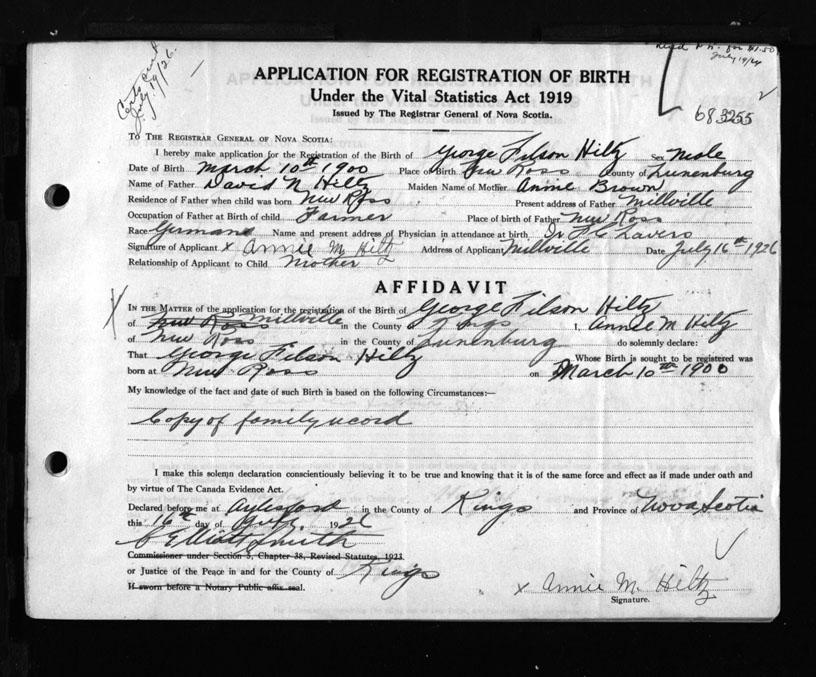 Certs cert
July 19/26.
for $1.50
July 19/26
683255
APPLICATION FOR REGISTRATION OF BIRTH
Under the Vital Statistics Act 1919
Issued by The Registrar General of Nova Scotia.
To The Registrar General of Nova Scotia:
I hereby make application for the Registration of the Birth of George Filson Hiltz Sex Male
Date of Birth March 10th 1900 Place of Birth New Ross County of Lunenburg
Name of Father David N Hiltz Maiden Name of Mother Annie Brown
Residence of Father when child was born New Ross Present address of Father Millville
Occupation of Father at Birth of child Farmer Place of birth of Father New Ross
Race Germans Name and present address of Physician in attendance at birth Dr Lavers
Signature of Applicant x Annie M Hiltz Address of Applicant Millville Date July 16th 1926
Relationship of Applicant to Child Mother
AFFIDAVIT
In the Matter of the application for the registration of the Birth of George Filson Hiltz
of New Ross Millville in the County of Kings I, Annie M Hiltz
of New Ross in the County of Lunenburg do solemnly declare:
That George Filson Hiltz Whose Birth is sought to be registered was
born at New Ross on March 10th 1900
My knowledge of the fact and date of such Birth is based on the following Circumstances:—
Copy of family record
I make this solemn declaration conscientiously believing it to be true and knowing that it is of the same force and effect as if made under oath and
by virtue of The Canada Evidence Act.
Declared before me at Aylesford in the County of Kings and Province of Nova Scotia
this 16th day of July 1926
Elliott Smith
Commissioner under Section 5, Chapter 38, Revised Statutes, 1923
or Justice of the Peace in and for the County of Kings
If sworn before a Notary Public affix seal.
x Annie M. Hiltz
Signature.